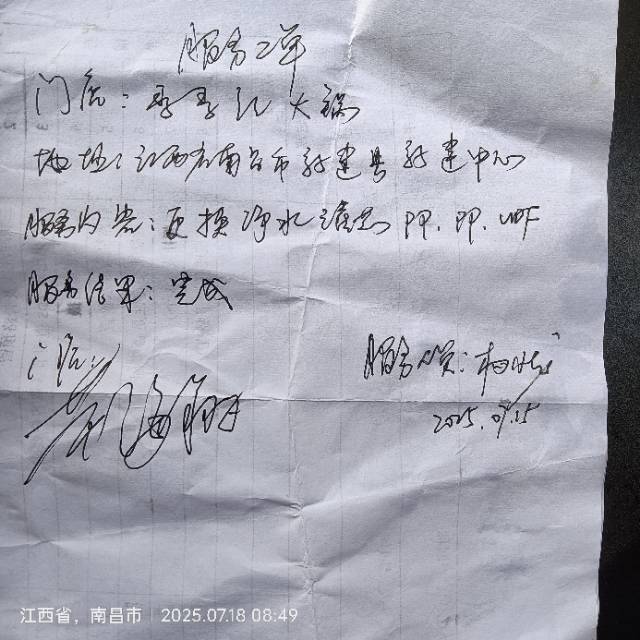 服务工单
门店：季季红火锅
地址：江西省南昌市新建县新建中心
服务内容：更换净水滤芯 PP. PP. UDF
服务结果：完成
门店：
服务人员：
2025.07.15
江西省，南昌市 2025.07.18 08:49